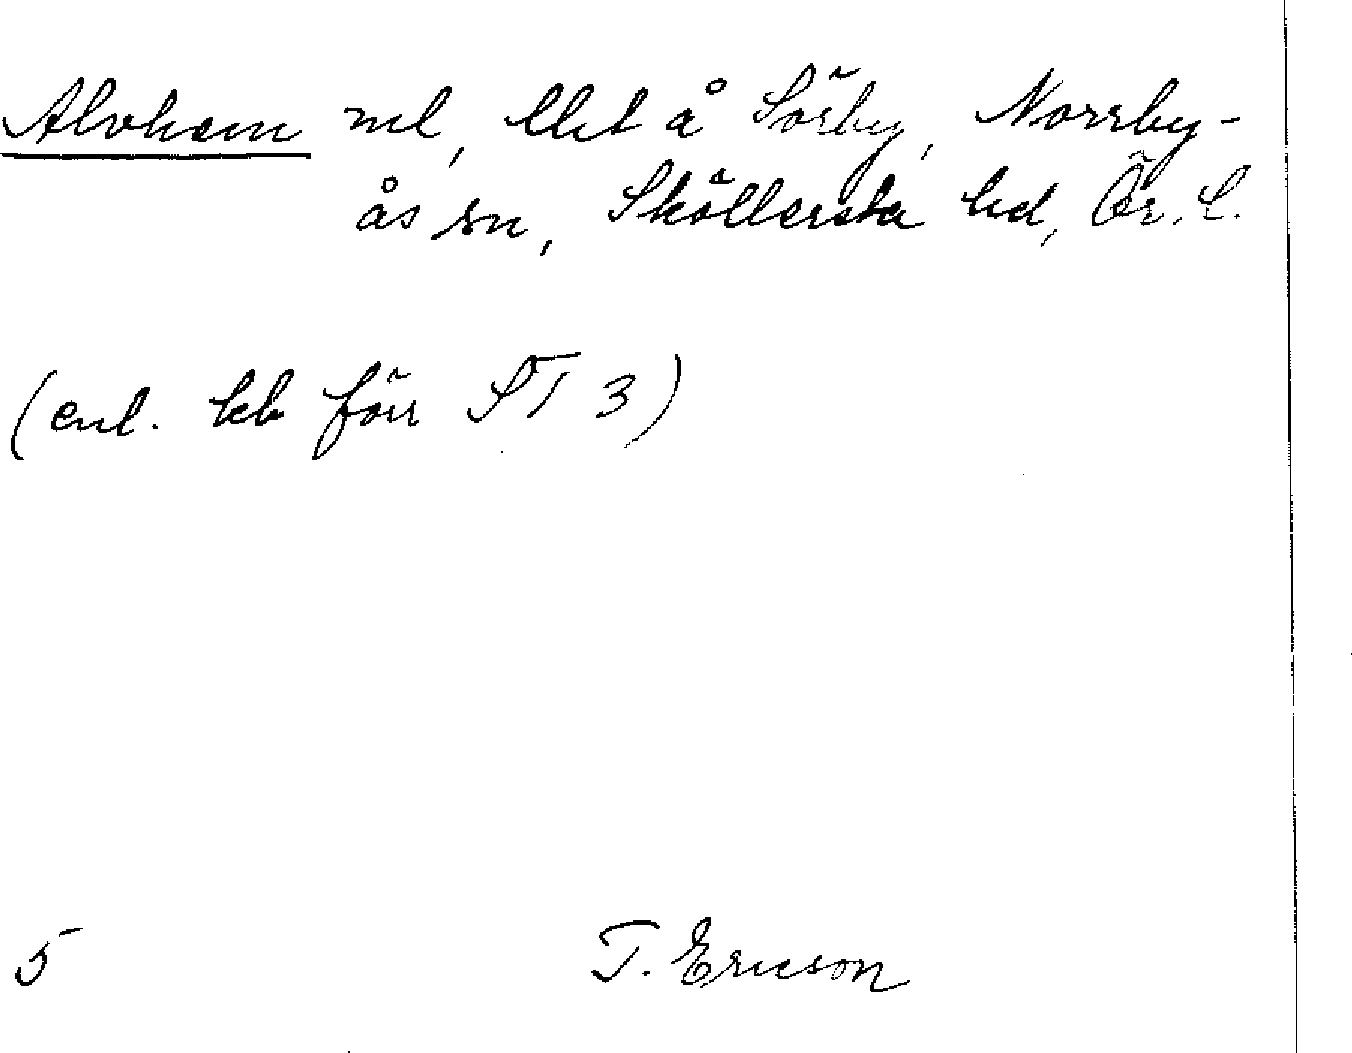 Alvhem nel, lht å Sörby, Norrby-
ås sn, Sköllersta hd, Ör. l.
(enl. kb förr ST 3)
5 T. Ericson